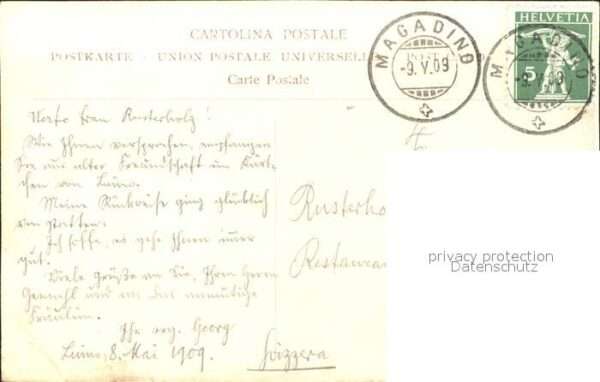 CARTOLINA POSTALE
POSTKARTE · UNION POSTALE UNIVERSELLE
Carte Postale
MAGADINO
-9.V.09
HELVETIA
5
MAGADINO
-9.V.09
Werte Frau Rusterholz!
Wie Ihnen versprochen, empfangen
Sie aus alter Freundschaft ein Kärt-
chen von Luino.
Meine Rückreise ging glücklich
von statten.
Ich hoffe, es gehe Ihnen immer
gut.
Viele Grüße an Sie, Ihren Herrn
Gemahl und an das anmutige
Fräulein.
Ihr erg. Georg
Luino, 8. Mai 1909.
Rusterho
Restaura
Svizzera
privacy protection
Datenschutz